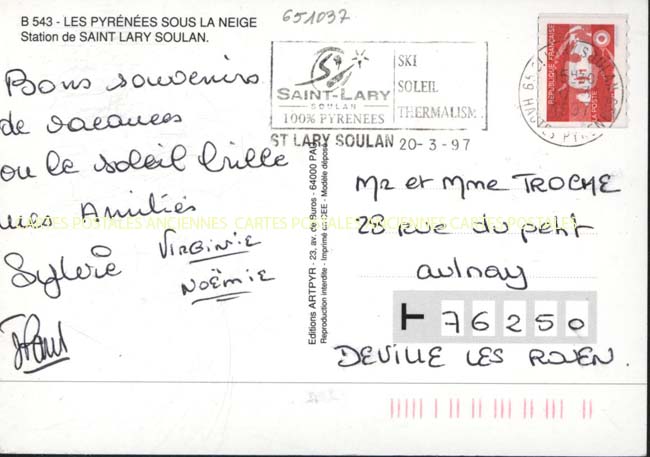 B 543 - LES PYRÉNÉES SOUS LA NEIGE
Station de SAINT LARY SOULAN.
651037
Bons souvenirs
de vacances
ou le soleil brille
mes Amitiés
Sylvie VIRGINIE
NOËMIE
SAINT-LARY
SOULAN
100% PYRENEES
SKI
SOLEIL
THERMALISME
ST LARY SOULAN 20-3-97
REPUBLIQUE FRANÇAISE
LA POSTE
Editions ARTPYR - 23, av. de Buros - 64000 PAU
Reproduction interdite - Imprimé en CEE - Modèle déposé
Mr et Mme TROCHE
28 rue du petit
aulnay
76250
DEVILLE LES ROUEN.
CARTES POSTALES ANCIENNES CARTES POSTALES ANCIENNES